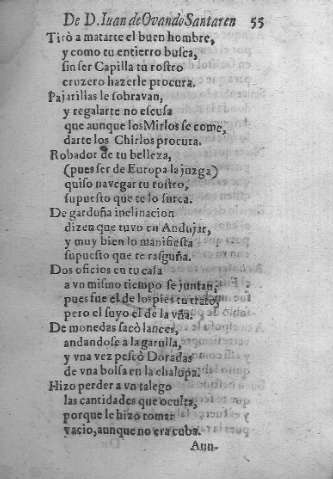 De D. Iuan de Ovando Santaren 55
Tirò a matarte el buen hombre,
y como tu entierro busca,
sin ser Capilla tu rostro
cruzero hazerle procura.
Pajarillas le sobravan,
y regalarte no escusa
que aunque los Mirlos se come,
darte los Chirlos procura.
Robador de tu belleza,
(pues ser de Europa la juzga)
quiso navegar tu rostro,
supuesto que te lo surca.
De garduña inclinacion
dizen que tuvo en Andujar,
y muy bien lo manifiesta
supuesto que te rasguña.
Dos oficios en tu casa
a vn mismo tiempo se juntan,
pues fue el de los pies tu trato,
pero el suyo el de la vña.
De monedas sacò lances,
andandose a la garulla,
y vna vez pescò Doradas
de vna bolsa en la chalupa.
Hizo perder a vn talego
las cantidades que oculta,
porque le hizo tomar
vacio, aunque no era cuba.
Aun-